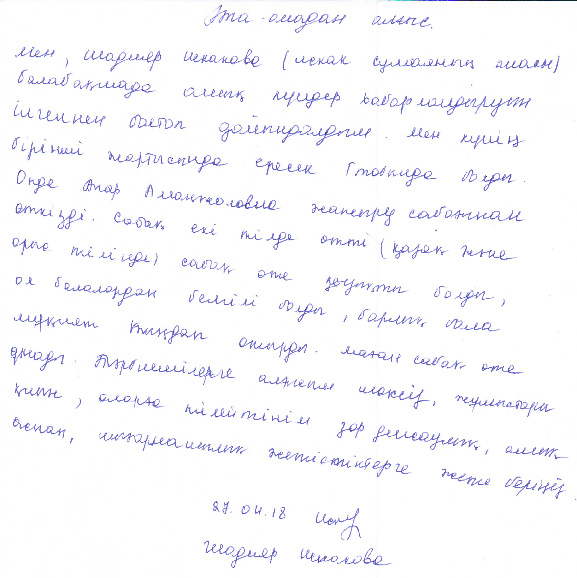 Ата-анадан алғыс.
Мен, Шадияр Искакова ( Искак Сумаяның анасы)
балабақшада ашық күндер хабарландыруын
ілгеннен бастап дайындалдым. Мен күннің
бірінші жартысында ересек болды.
Онда Анар Аманжоловна жапсыру сабағынан
өткізді. Сабақ екі тілде өтті (қазақ және
орыс тілінде) сабақ өте қызықты болды,
ол балалардан белгілі болды, барлық бала
мұқият тыңдап отырды. Маған сабақ өте
ұнады. Тәрбиешілерге алғысым шексіз, жұмыстары
қиын, оларға тілейтінім зор денсаулық, ашық
аспан, шығармашылық жетістіктерге жете беріңіз
27.04.18
Шадияр Искакова